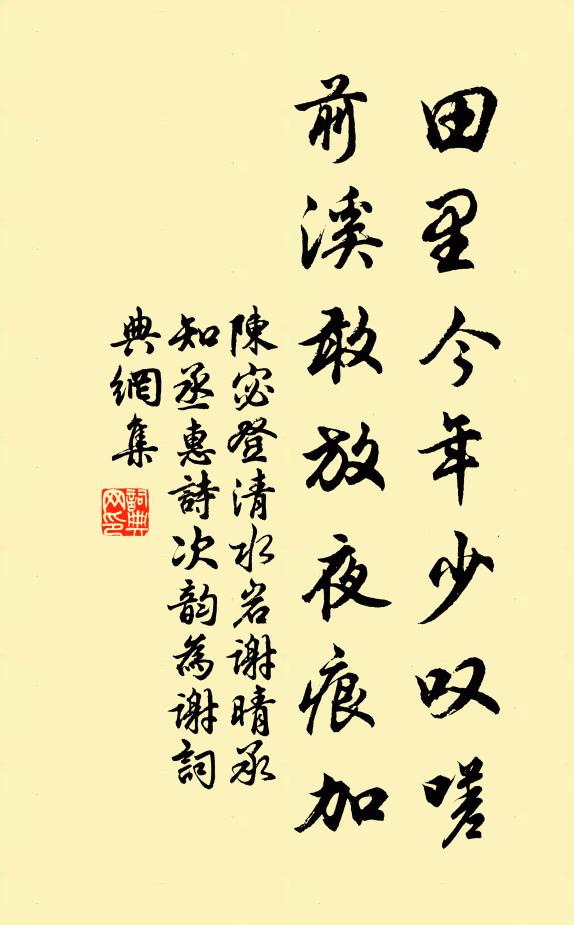 田里今年少叹嗟
前溪敢放夜痕加
陳宓登清水岩谢晴承
知丞惠詩次韵為谢詞
典網集
詞典网印